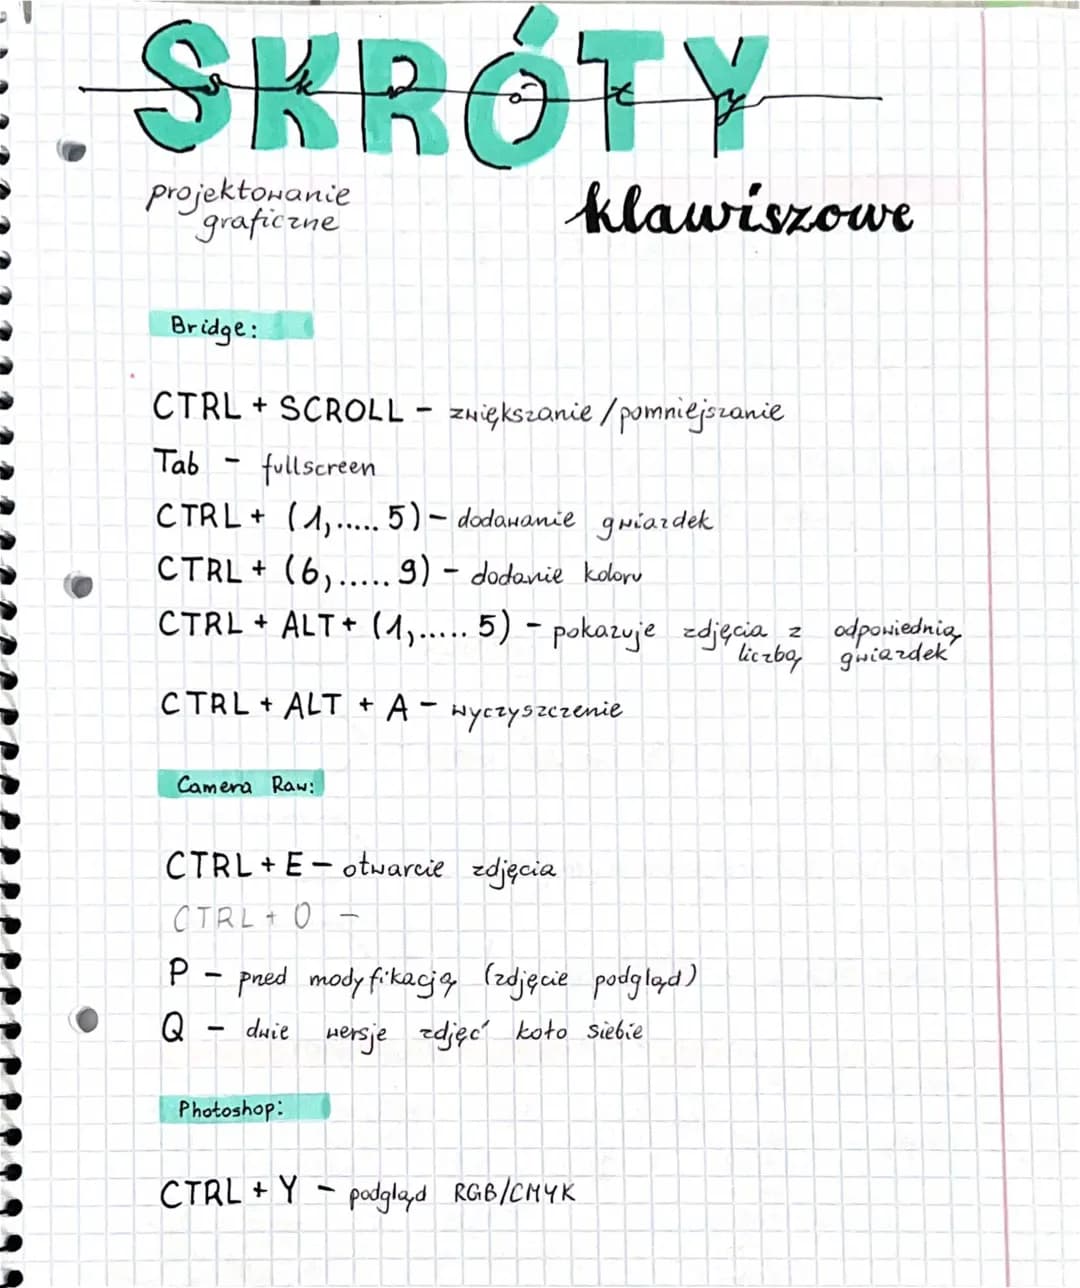 SKRÓTY
skróty
projektowanie
graficzne
klawiszowe
Bridge:
CTRL + SCROLL - zwiększanie / pomniejszanie
Tab - fullscreen
CTRL + (1,..... 5) - dodawanie gwiazdek
CTRL + (6,..... 9) - dodanie koloru
CTRL + ALT + (1,..... 5) - pokazuje zdjęcia z odpowiednią
liczbą gwiazdek
CTRL + ALT + A - wyczyszczenie
Camera Raw:
CTRL + E - otwarcie zdjęcia
CTRL + O -
P - przed modyfikacją (zdjęcie podgląd)
Q - dwie wersje zdjęć koło siebie
Photoshop:
CTRL + Y - podgląd RGB/CMYK